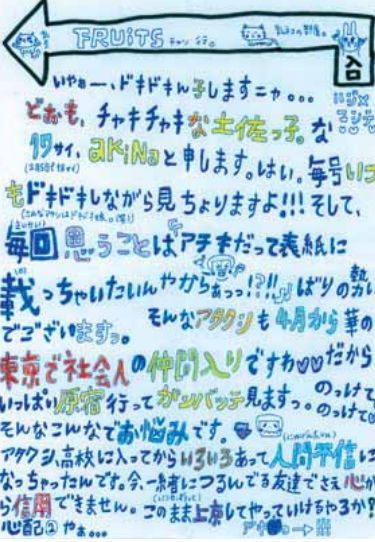 FRUiTS チャン 行。
入口
いやぁー、ドキドキん子しますニャ。。。
どおも、チャキチャキな土佐っ子。な
17サイ、akiNaと申します。はい。毎号いつ
もドキドキしながら見ちょりますよ!!!そして、
毎回思うことは「アチキだって表紙に
載っちゃいたいんやからぁっっ!?!!」ばりの勢い
でございますっ。
そんなアタクシも4月から華の
東京で社会人の仲間入りですわ♡♡だから
いっぱい原宿行ってガンバッテ見ますっ。のっけて
のっけて
そんなこんなでお悩みです。
アタクシ、高校に入ってからいろいろあって人間不信に
なっちゃったんです。今、一緒につるんでる友達でさえ心か
ら信用できません。このまま上京してやっていけるやろか?
心配②やぁ…